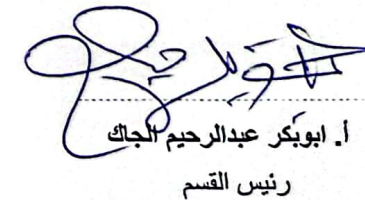 أ. ابوبكر عبدالرحيم الجاك
رئيس القسم